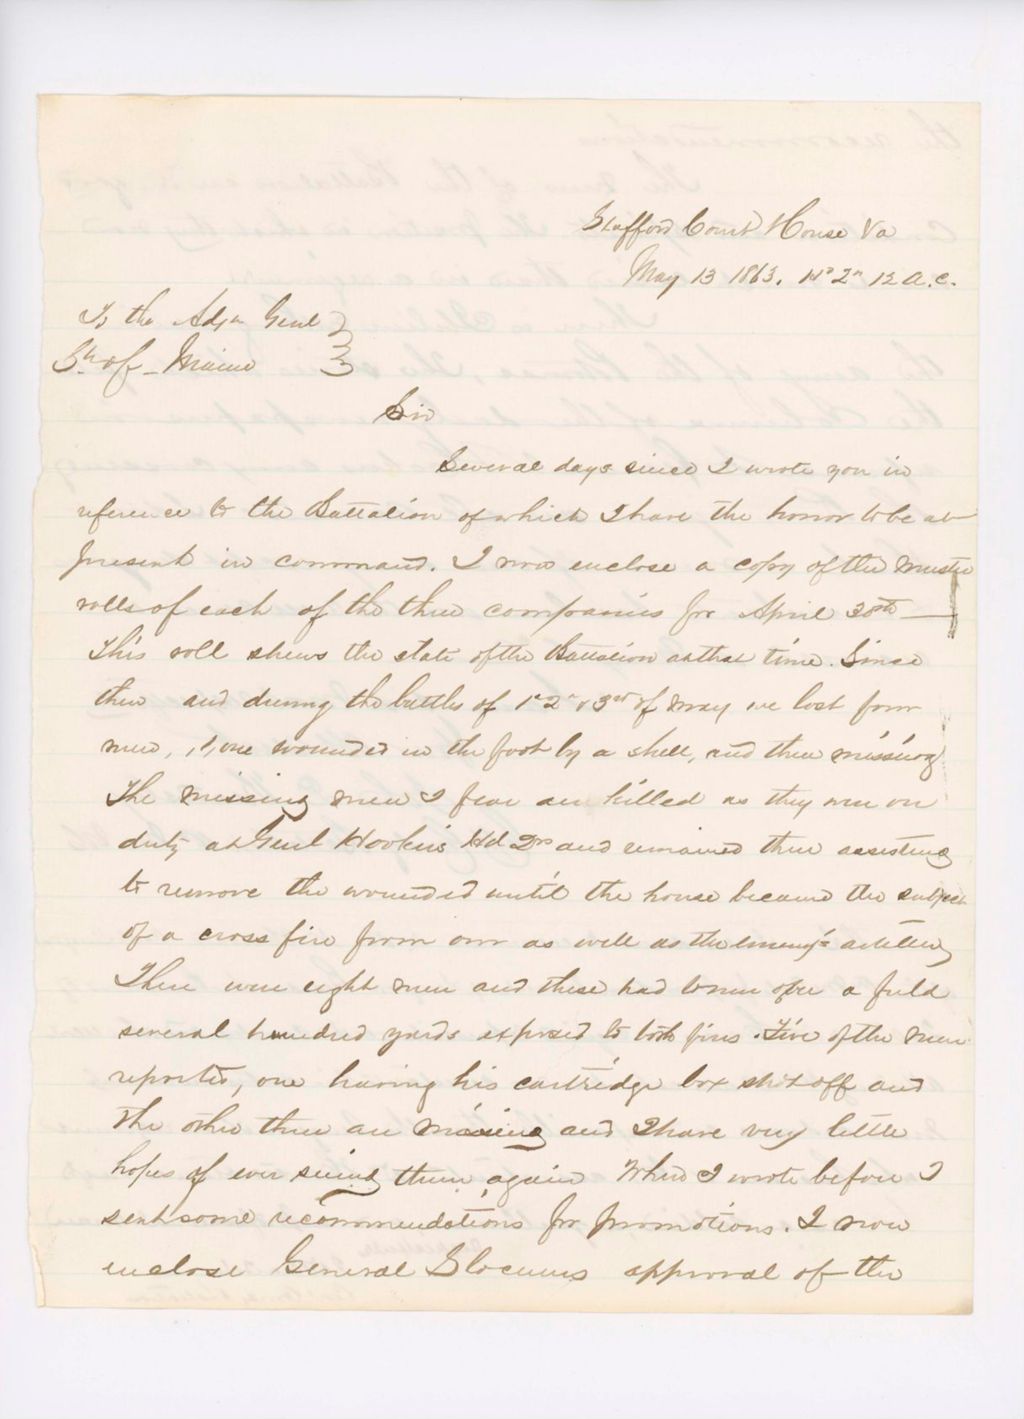 Stafford Court House Va
May 13 1863. Hd Qrs 12 A.C.
To the Adjn Genl
St of Maine
Sir
Several days since I wrote you in
reference to the Battalion of which I have the honor to be at
present in command. I now enclose a copy of the muster
rolls of each of the three companies for April 30th
This roll shews the state of the Battalion at that time. Since
then and during the battles of 1st 2n & 3rd of May we lost four
men, one wounded in the foot by a shell, and three missing
The missing men I fear are killed as they were on
duty at Genl Hookers Hd Qrs and remained there assisting
to remove the wounded until the house became the subject
of a cross fire from our as well as the enemy's artillery
There were eight men and these had to run over a field
several hundred yards exposed to both fires. Five of the men
reported, one having his cartridge box shot off and
the other three are missing and I have very little
hopes of ever seeing them again When I wrote before I
sent some recommendations for promotions. I now
enclose General Slocums approval of the